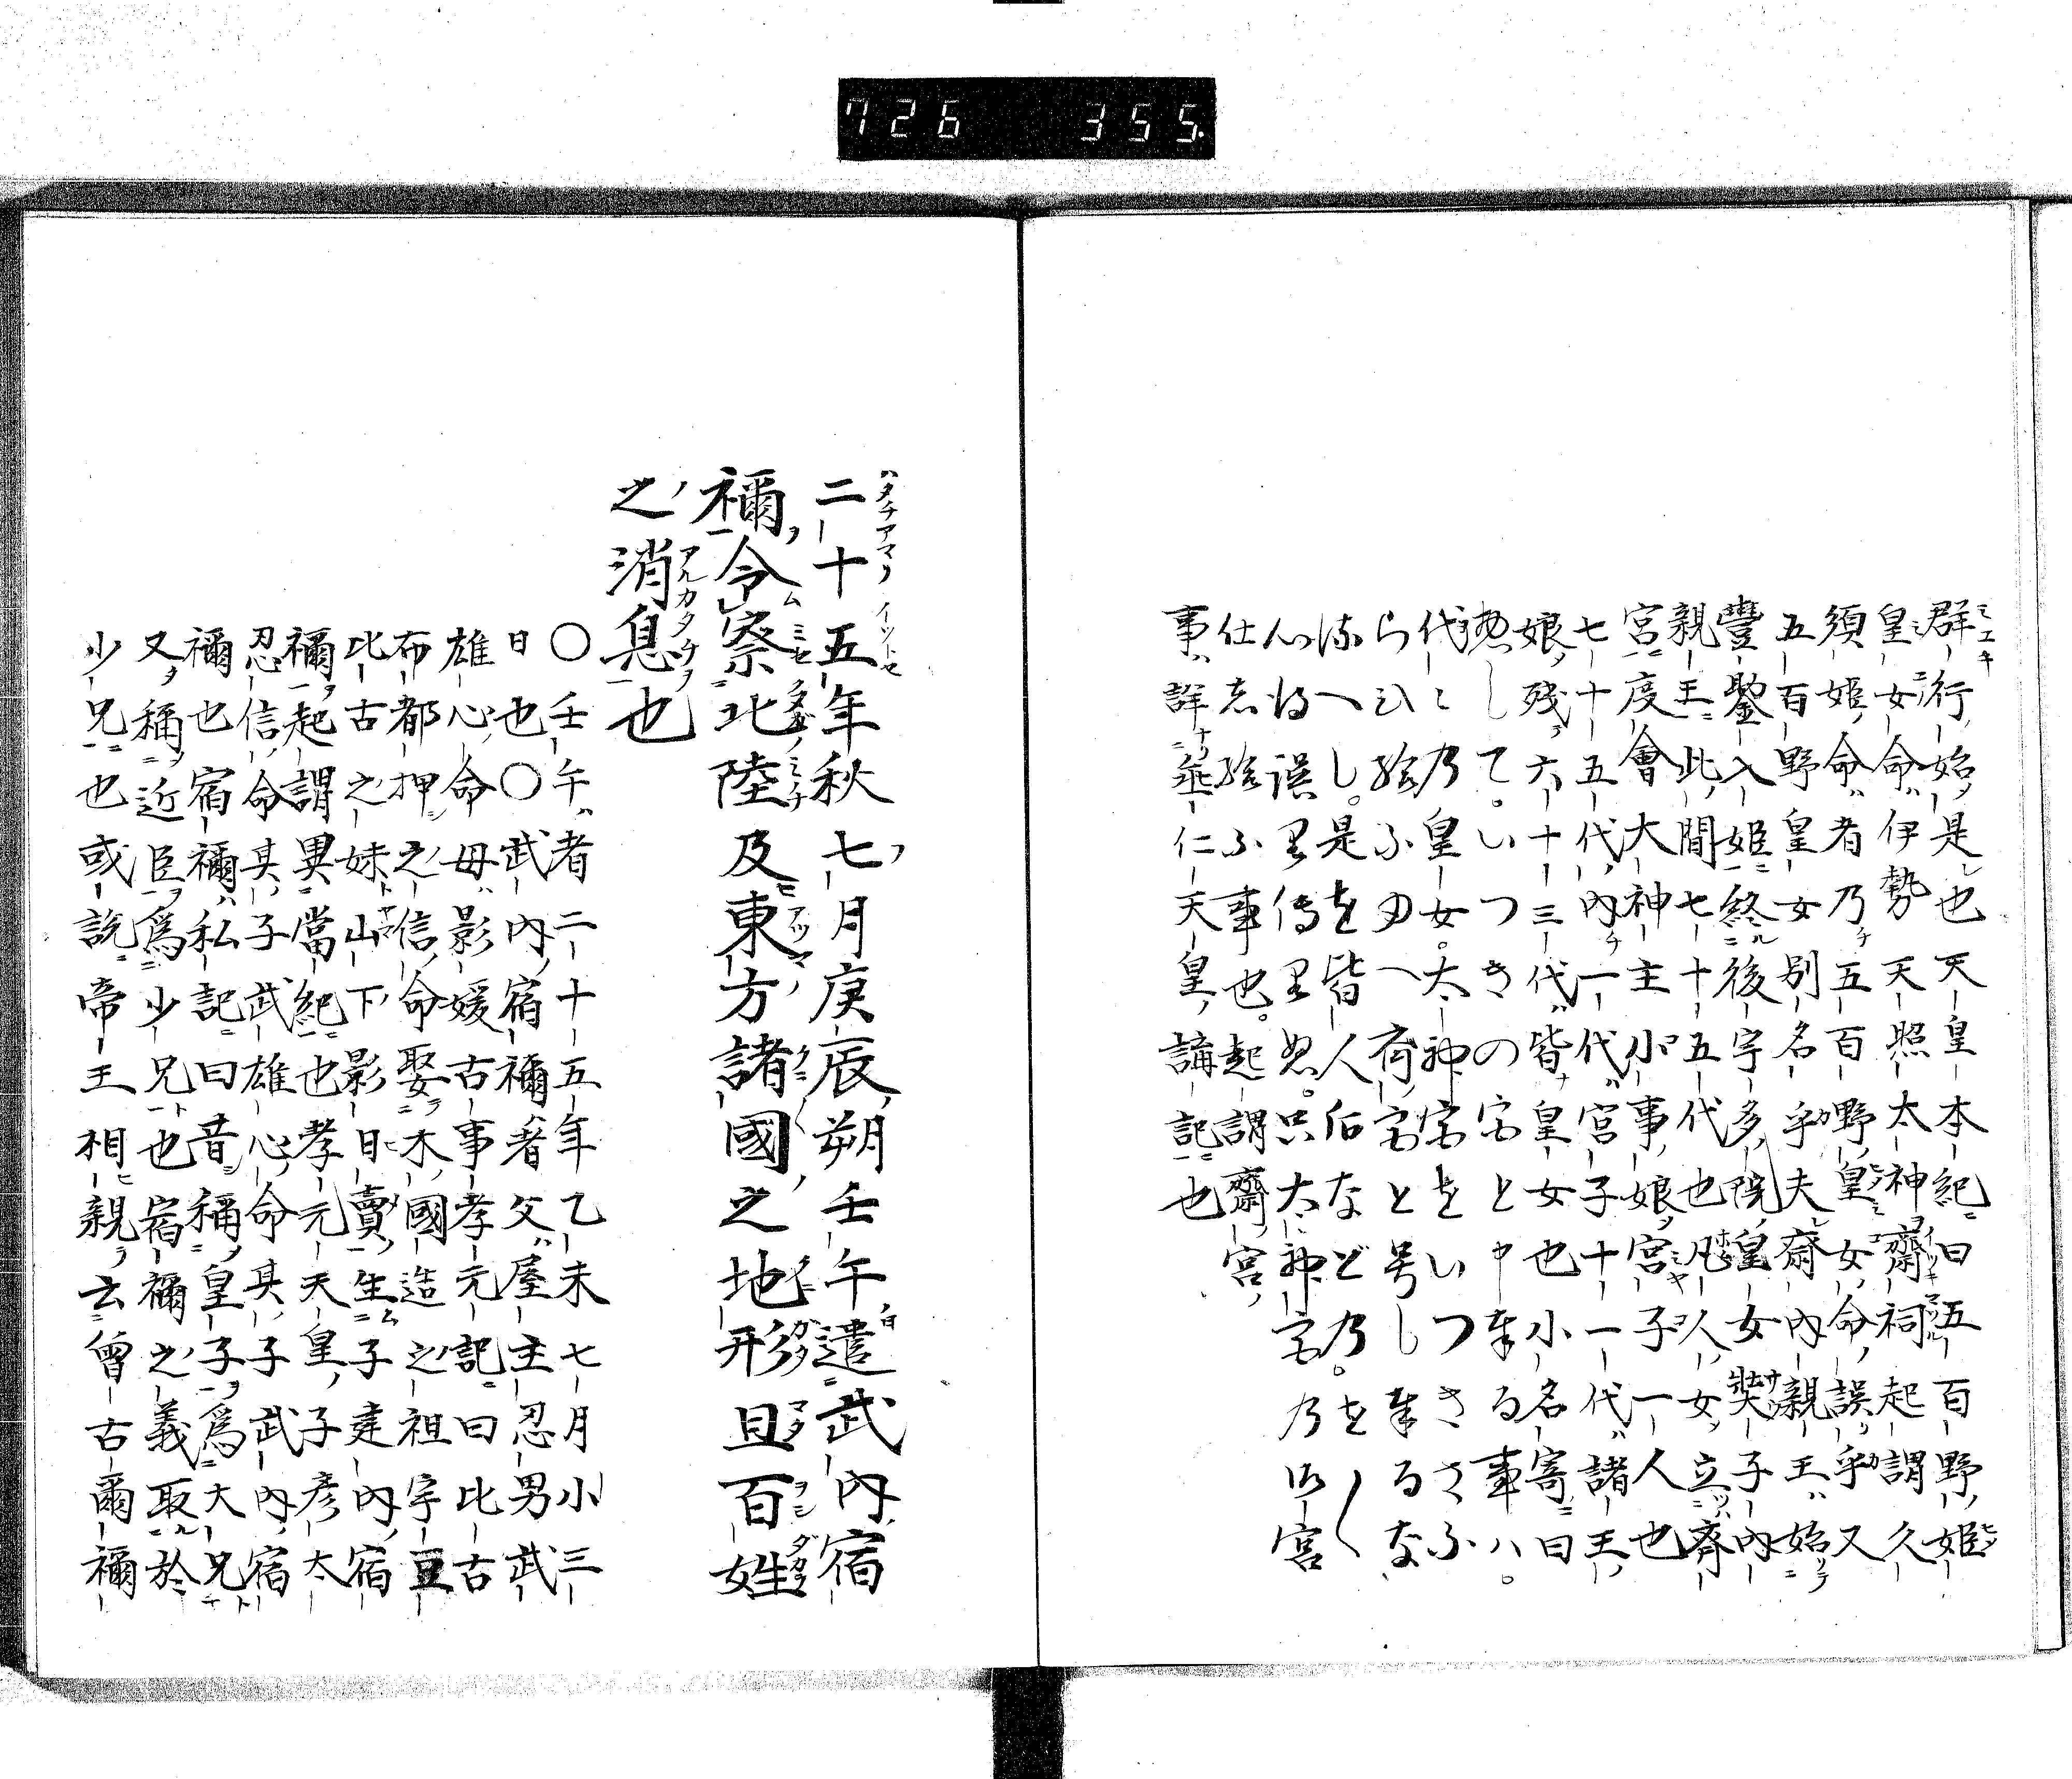 726 355.
群行始是也天皇本紀曰五百野姫
皇女命伊勢天照太神齋祠起謂久
須姫命者乃五百野皇女命誤乎又
五百野皇女別名乎夫齋內親王始
豐鍬入姫終後宇多院皇女奘子內
親王此間七十五代也凡人女立齋
宮度會大神主小事娘宮子一人也
七十五代內一代宮子十一代諸王
娘殘六十三代皆皇女也小名寄曰
惣して。いつきの宮と申奉る事ハ。
代〻乃皇女。太神宮をいつきさふ
らひ給ふゆへ斎宮と号し奉るな
へし。是を皆人
仕志給ふ事也。起謂齋宮
事詳垂仁天皇講記也
二十五年秋七月庚辰朔壬午遣武內宿
禰令察北陸及東方諸國之地形且百姓
之消息也
〇壬午者二十五年乙未七月小三
日也〇武內宿禰者父屋主忍男武
雄心命母影媛古事孝元記曰比古
布都押之信命娶木國造之祖宇豆
比古之妹山下影日賣生子建內宿
禰起謂異當紀也孝元天皇子彥太
忍信命其子武雄心命其子武內宿
禰也宿禰私記曰昔稱皇子爲大兄
又稱近臣爲少兄也宿禰之義取於
少兄也或說帝王相親云曾古爾禰